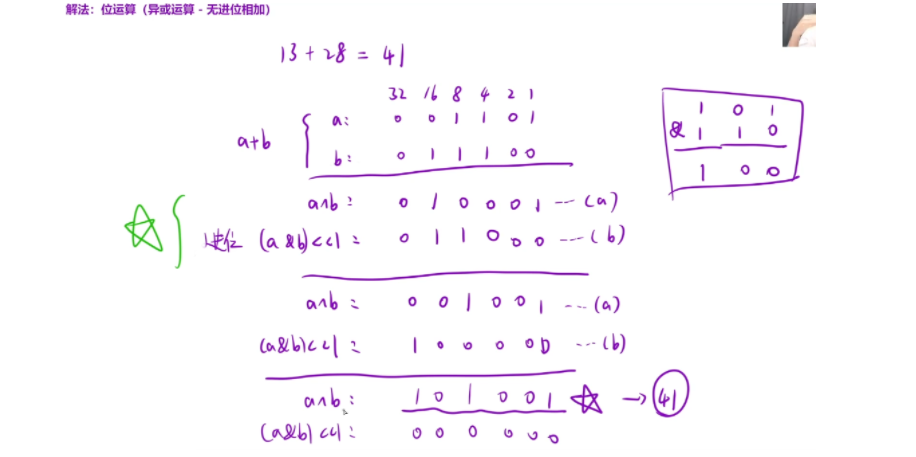 解法：位运算（异或运算 - 无进位相加）
13 + 28 = 41
32 16 8 4 2 1
a+b
a: 0 0 1 1 0 1
b: 0 1 1 1 0 0
a^b: 0 1 0 0 0 1 --- (a)
进位 (a&b)<<1: 0 1 1 0 0 0 --- (b)
a^b: 0 0 1 0 0 1 --- (a)
(a&b)<<1: 1 0 0 0 0 0 --- (b)
a^b: 1 0 1 0 0 1 ☆ → 41
(a&b)<<1: 0 0 0 0 0 0
1 0 1
& 1 1 0
1 0 0